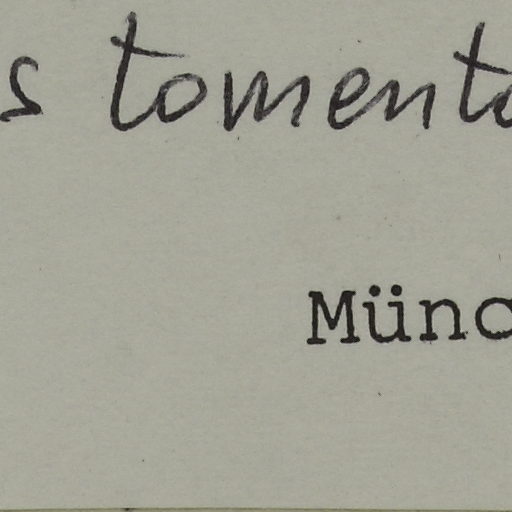 s tomento
Münc